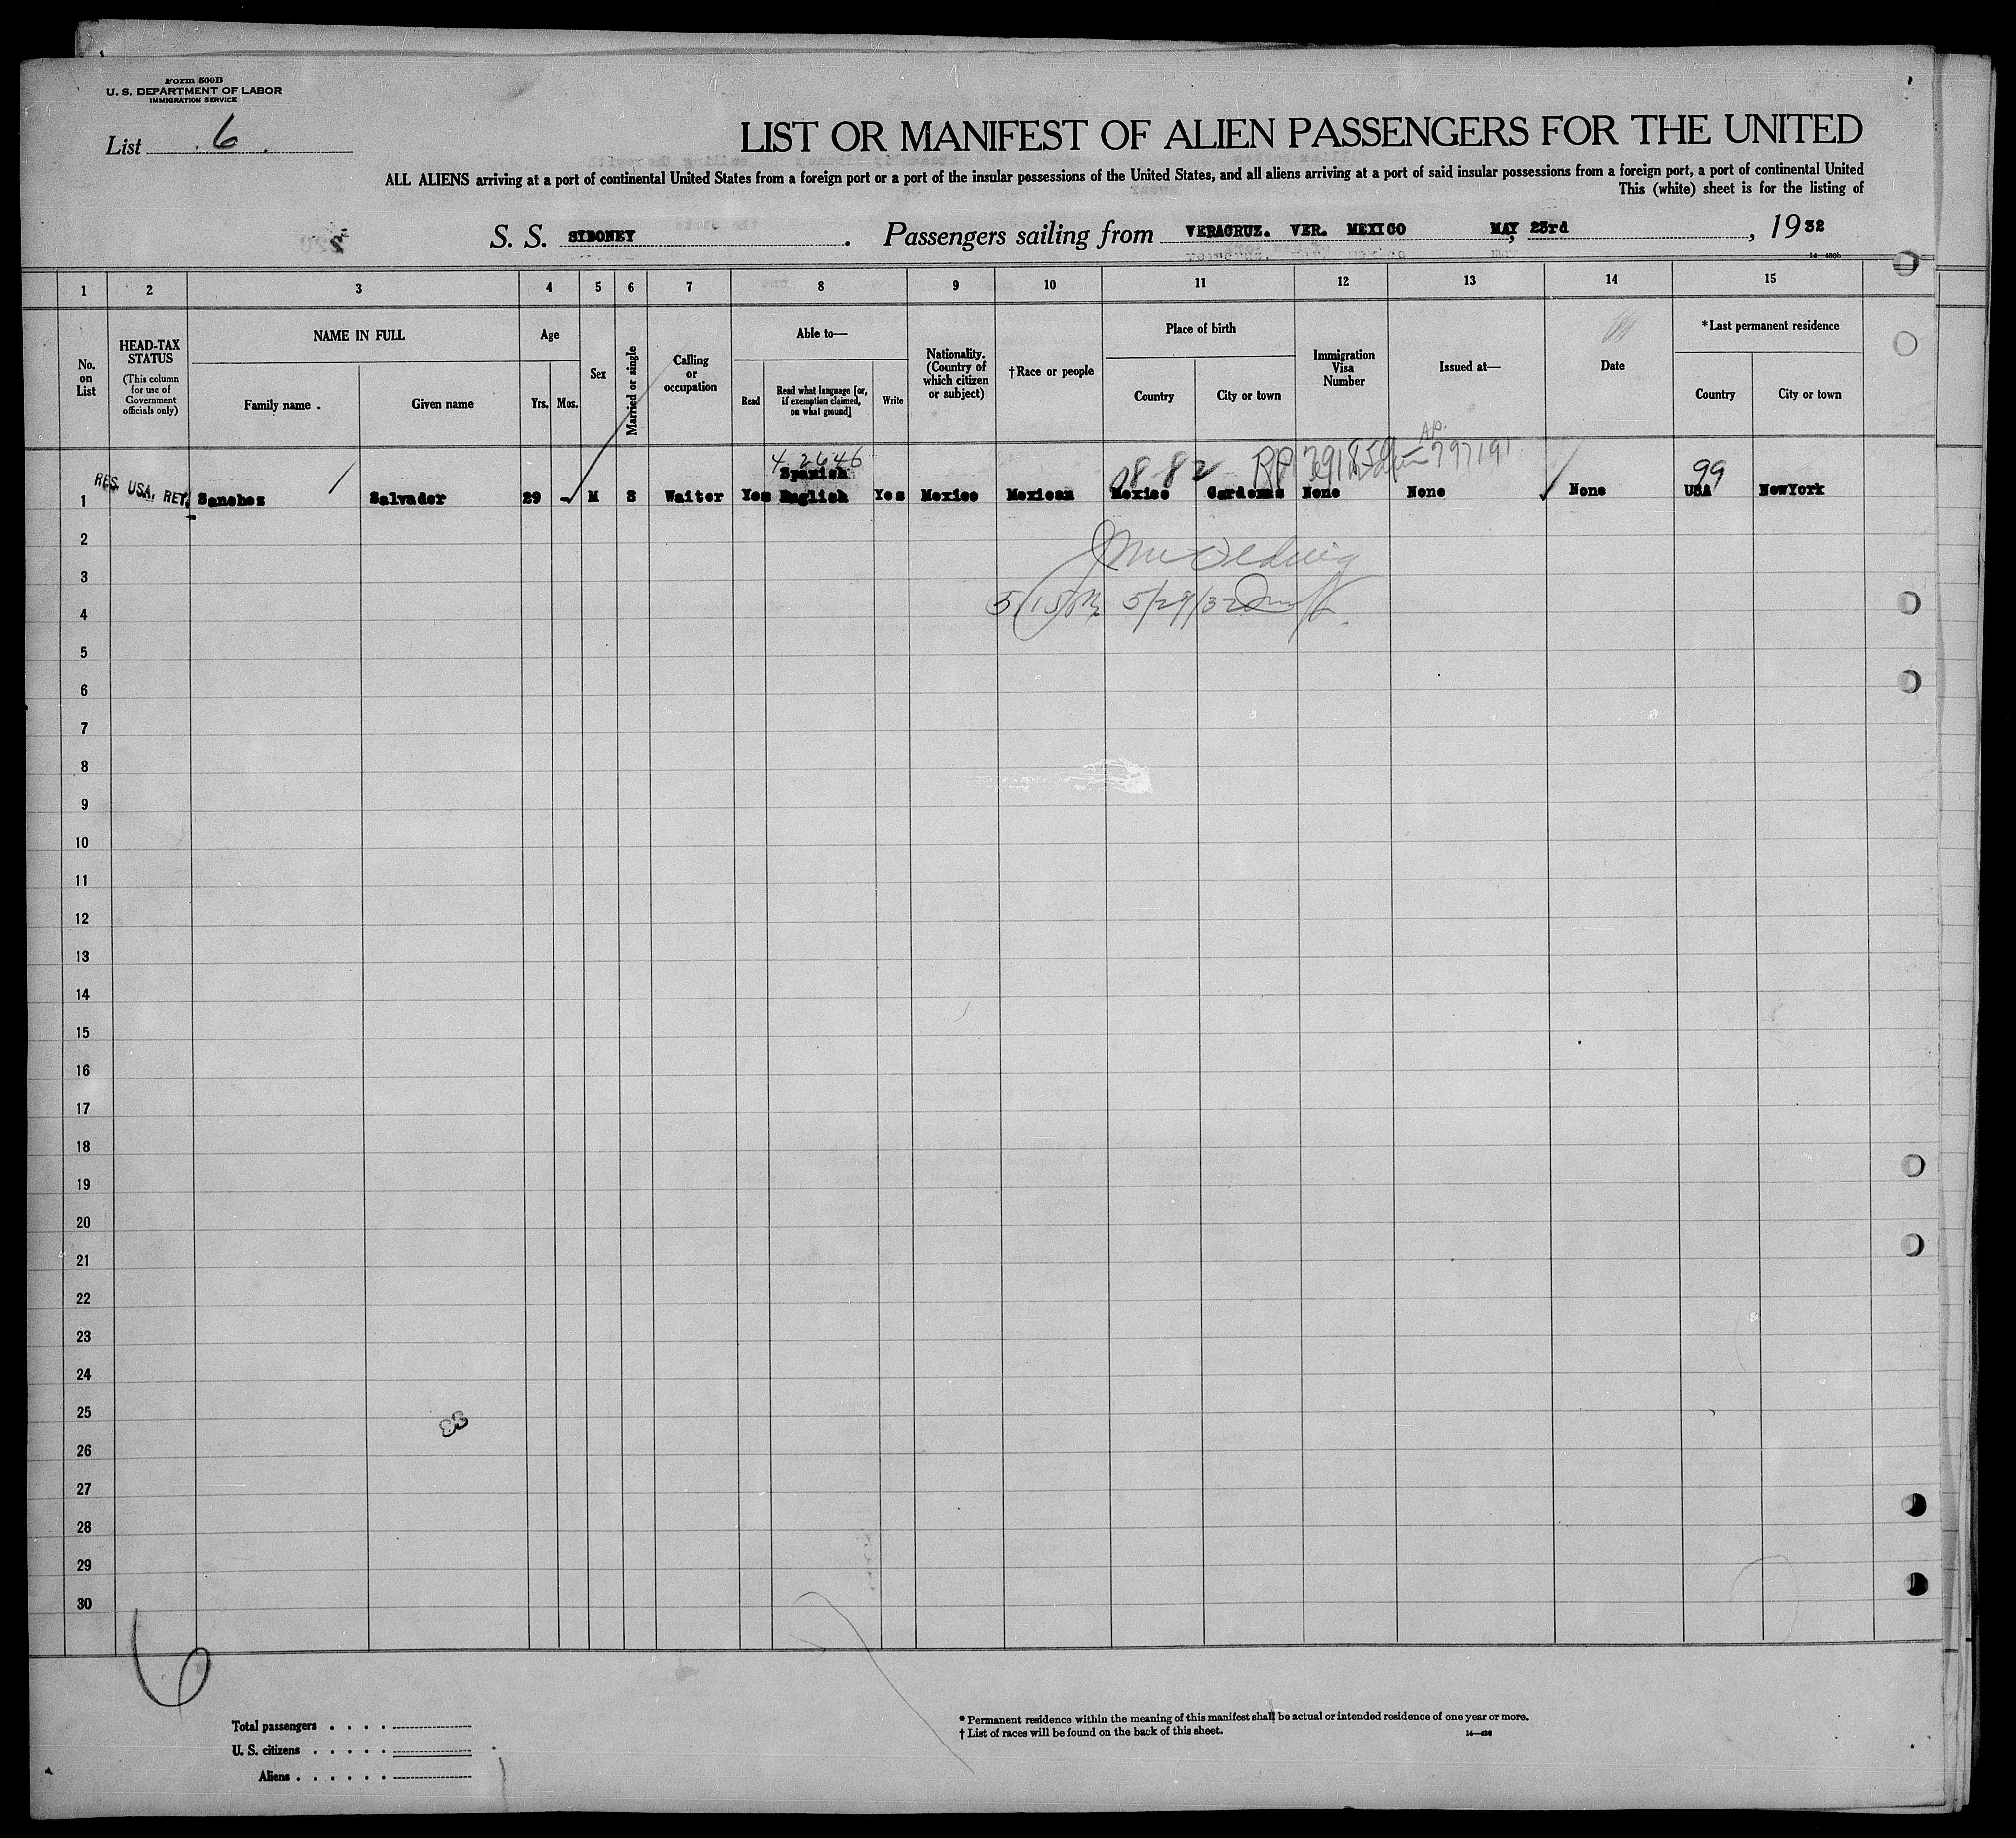 Form 500B
U. S. DEPARTMENT OF LABOR
IMMIGRATION SERVICE
List 6
LIST OR MANIFEST OF ALIEN PASSENGERS FOR THE UNITED
ALL ALIENS arriving at a port of continental United States from a foreign port or a port of the insular possessions of the United States, and all aliens arriving at a port of said insular possessions from a foreign port, a port of continental United
This (white) sheet is for the listing of
S. S. SIBONEY. Passengers sailing from VERACRUZ. VER. MEXICO MAY 23rd, 1932
14—430b
1 2 3 4 5 6 7 8 9 10 11 12 13 14 15
No. on List
HEAD-TAX STATUS
(This column for use of Government officials only)
NAME IN FULL
Family name
Given name
Age
Yrs. Mos.
Sex
Married or single
Calling or occupation
Able to—
Read
Read what language [or, if exemption claimed, on what ground]
Write
Nationality. (Country of which citizen or subject)
†Race or people
Place of birth
Country
City or town
Immigration Visa Number
Issued at—
Date
*Last permanent residence
Country
City or town
4 2646
08-82
RP
797191
99
Spanish
RES. USA, RET.
1 Sanchez Salvador 29 M S Waiter Yes English Yes Mexico Mexican Mexico Cardenas None None None USA NewYork
2
3
5/29/32
4
5
6
7
8
9
10
11
12
13
14
15
16
17
18
19
20
21
22
23
24
25
26
27
28
29
30
6
Total passengers
U. S. citizens
Aliens
* Permanent residence within the meaning of this manifest shall be actual or intended residence of one year or more.
† List of races will be found on the back of this sheet.
14—430